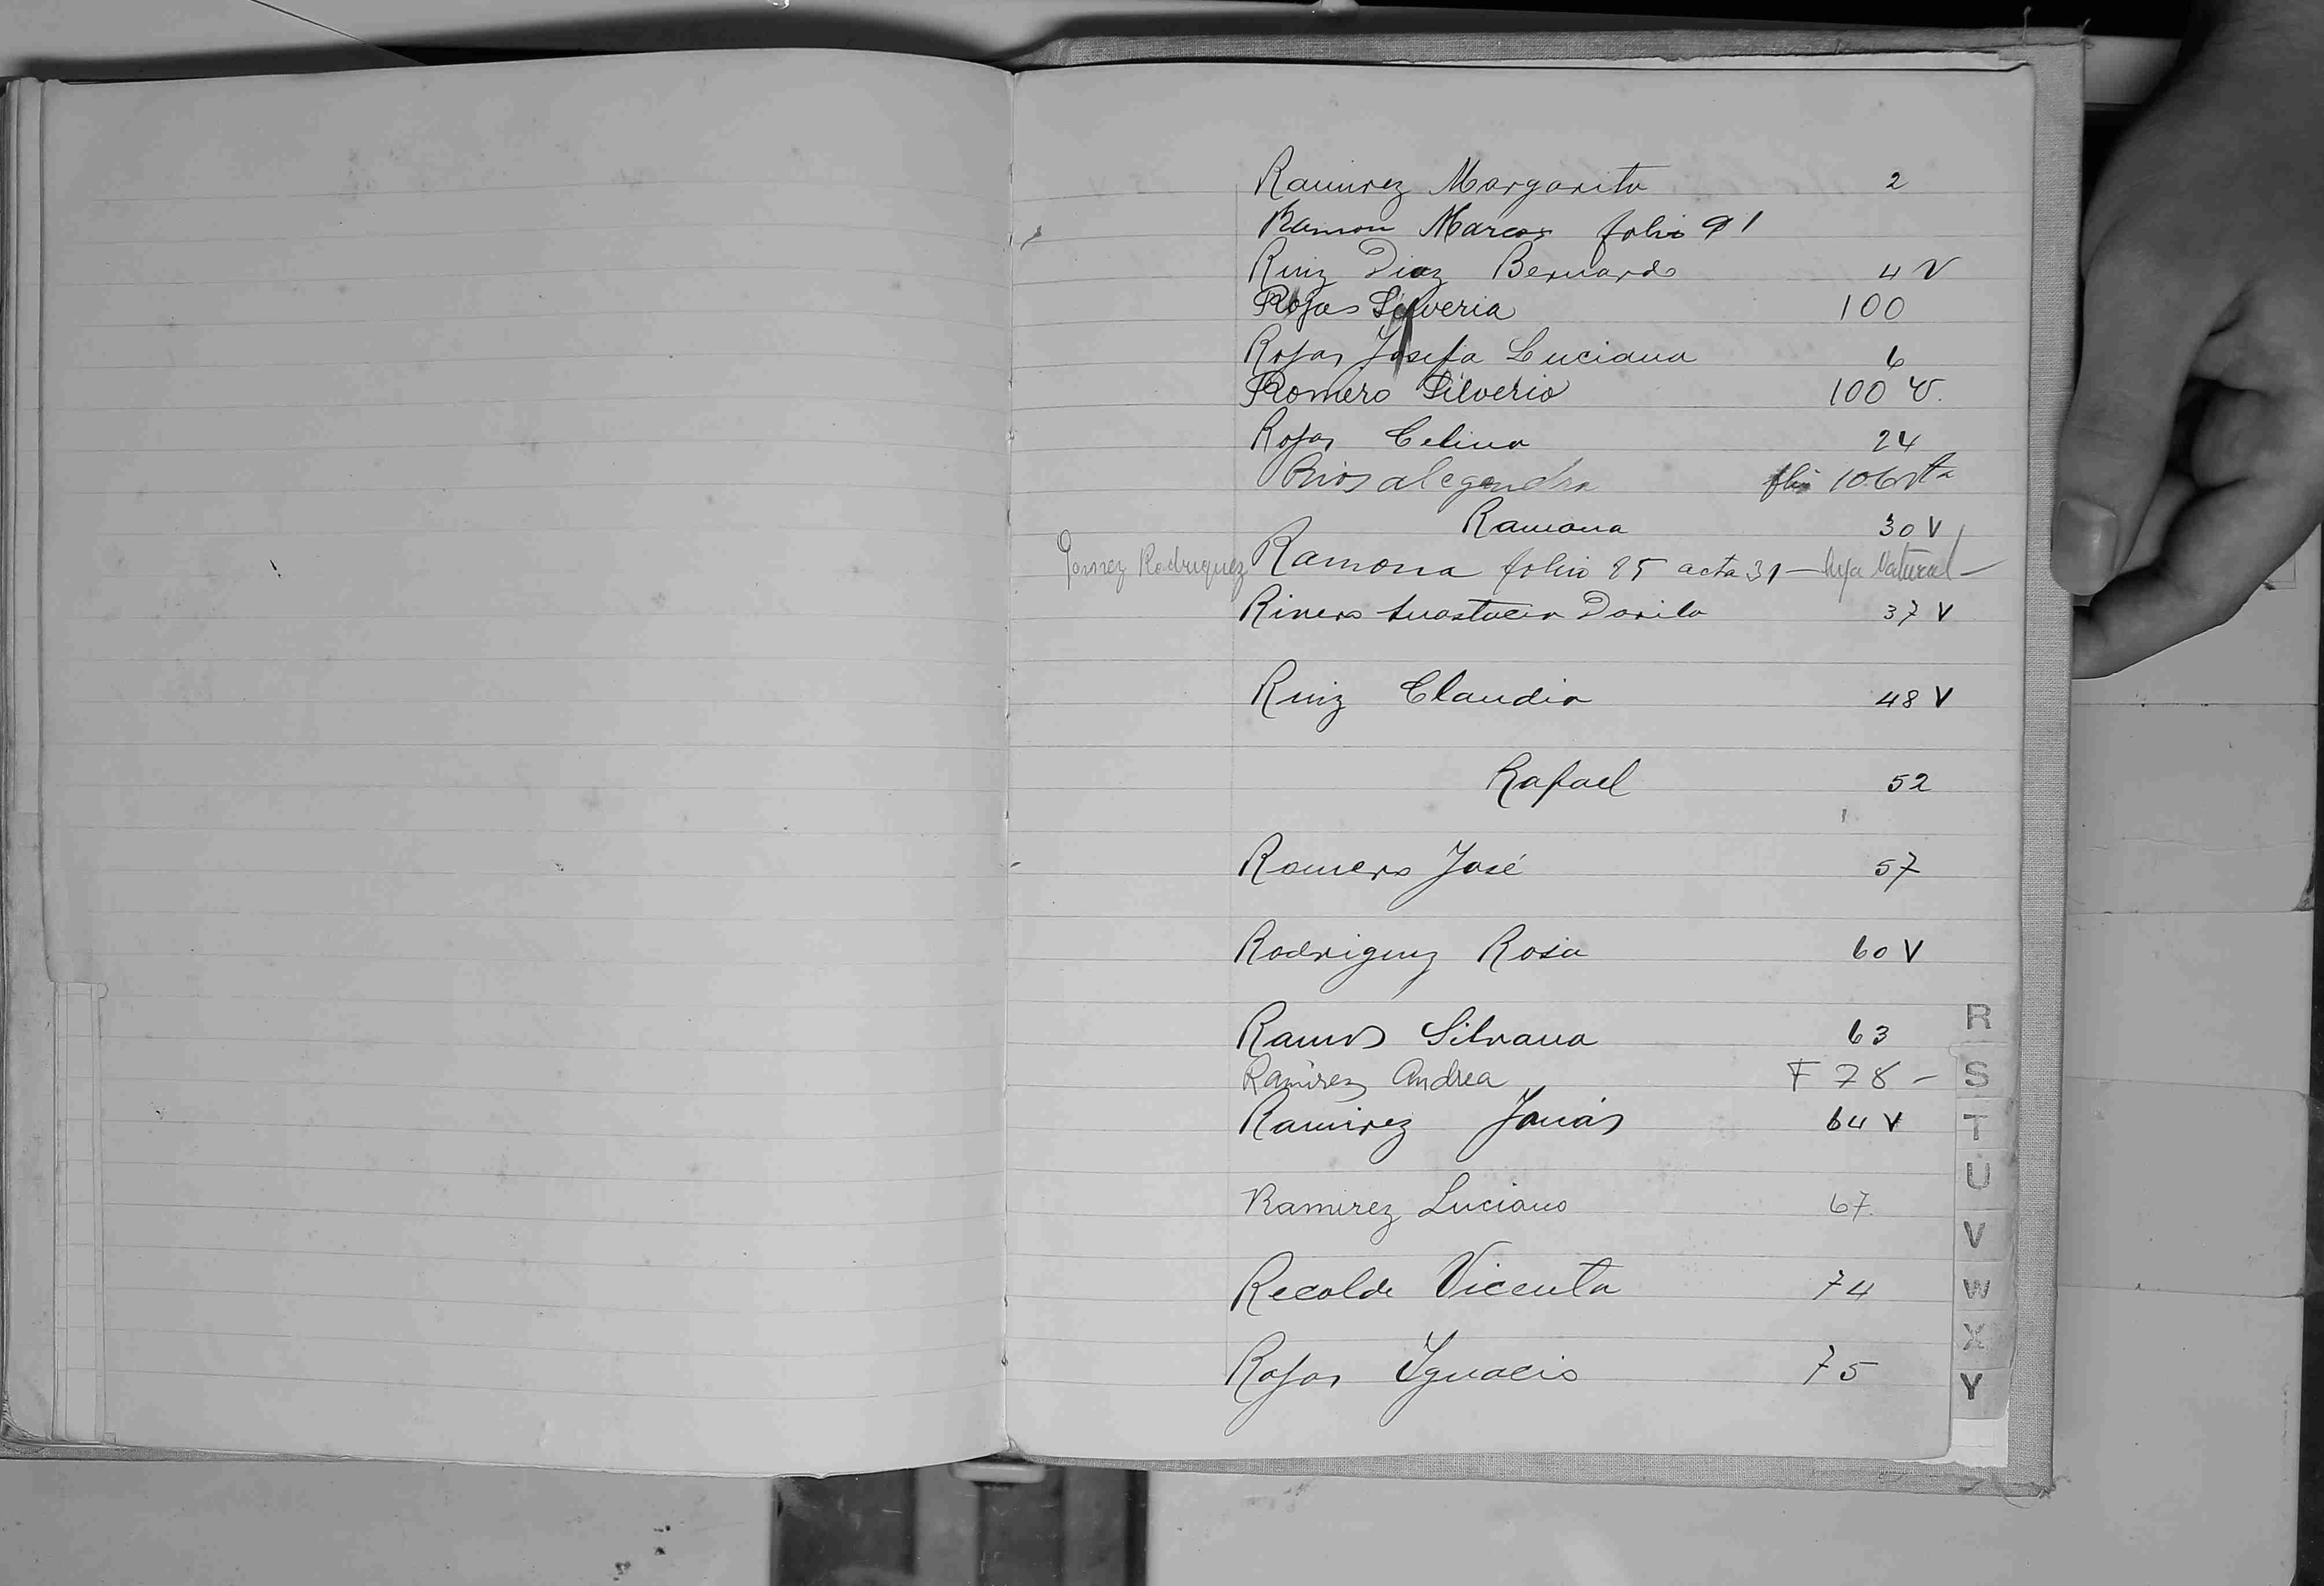 Ramirez Margarita 2
Ramon Marcos folio 91
Ruiz Diaz Bernardo 4 V
Rojas Silveria 100
Rojas Josefa Luciana 6
Romero Silverio 100 v.
Rojas Celina 24
Rios alegandra folio 106 vta
Ramona 30 V
Gomez Rodriguez Ramona folio 85 acta 31 — hija Natural —
Rivero Anastacia Dorila 37 V
Ruiz Claudia 48 V
Rafael 52
Romero José 57
Rodriguez Rosa 60 V
Ramos Silvana 63
Ramirez Andrea F 78 -
Ramirez 64 V
Ramirez Luciano 67.
Recalde Vicenta 74
Rojas Ygnacio 75
R
S
T
U
V
W
X
Y